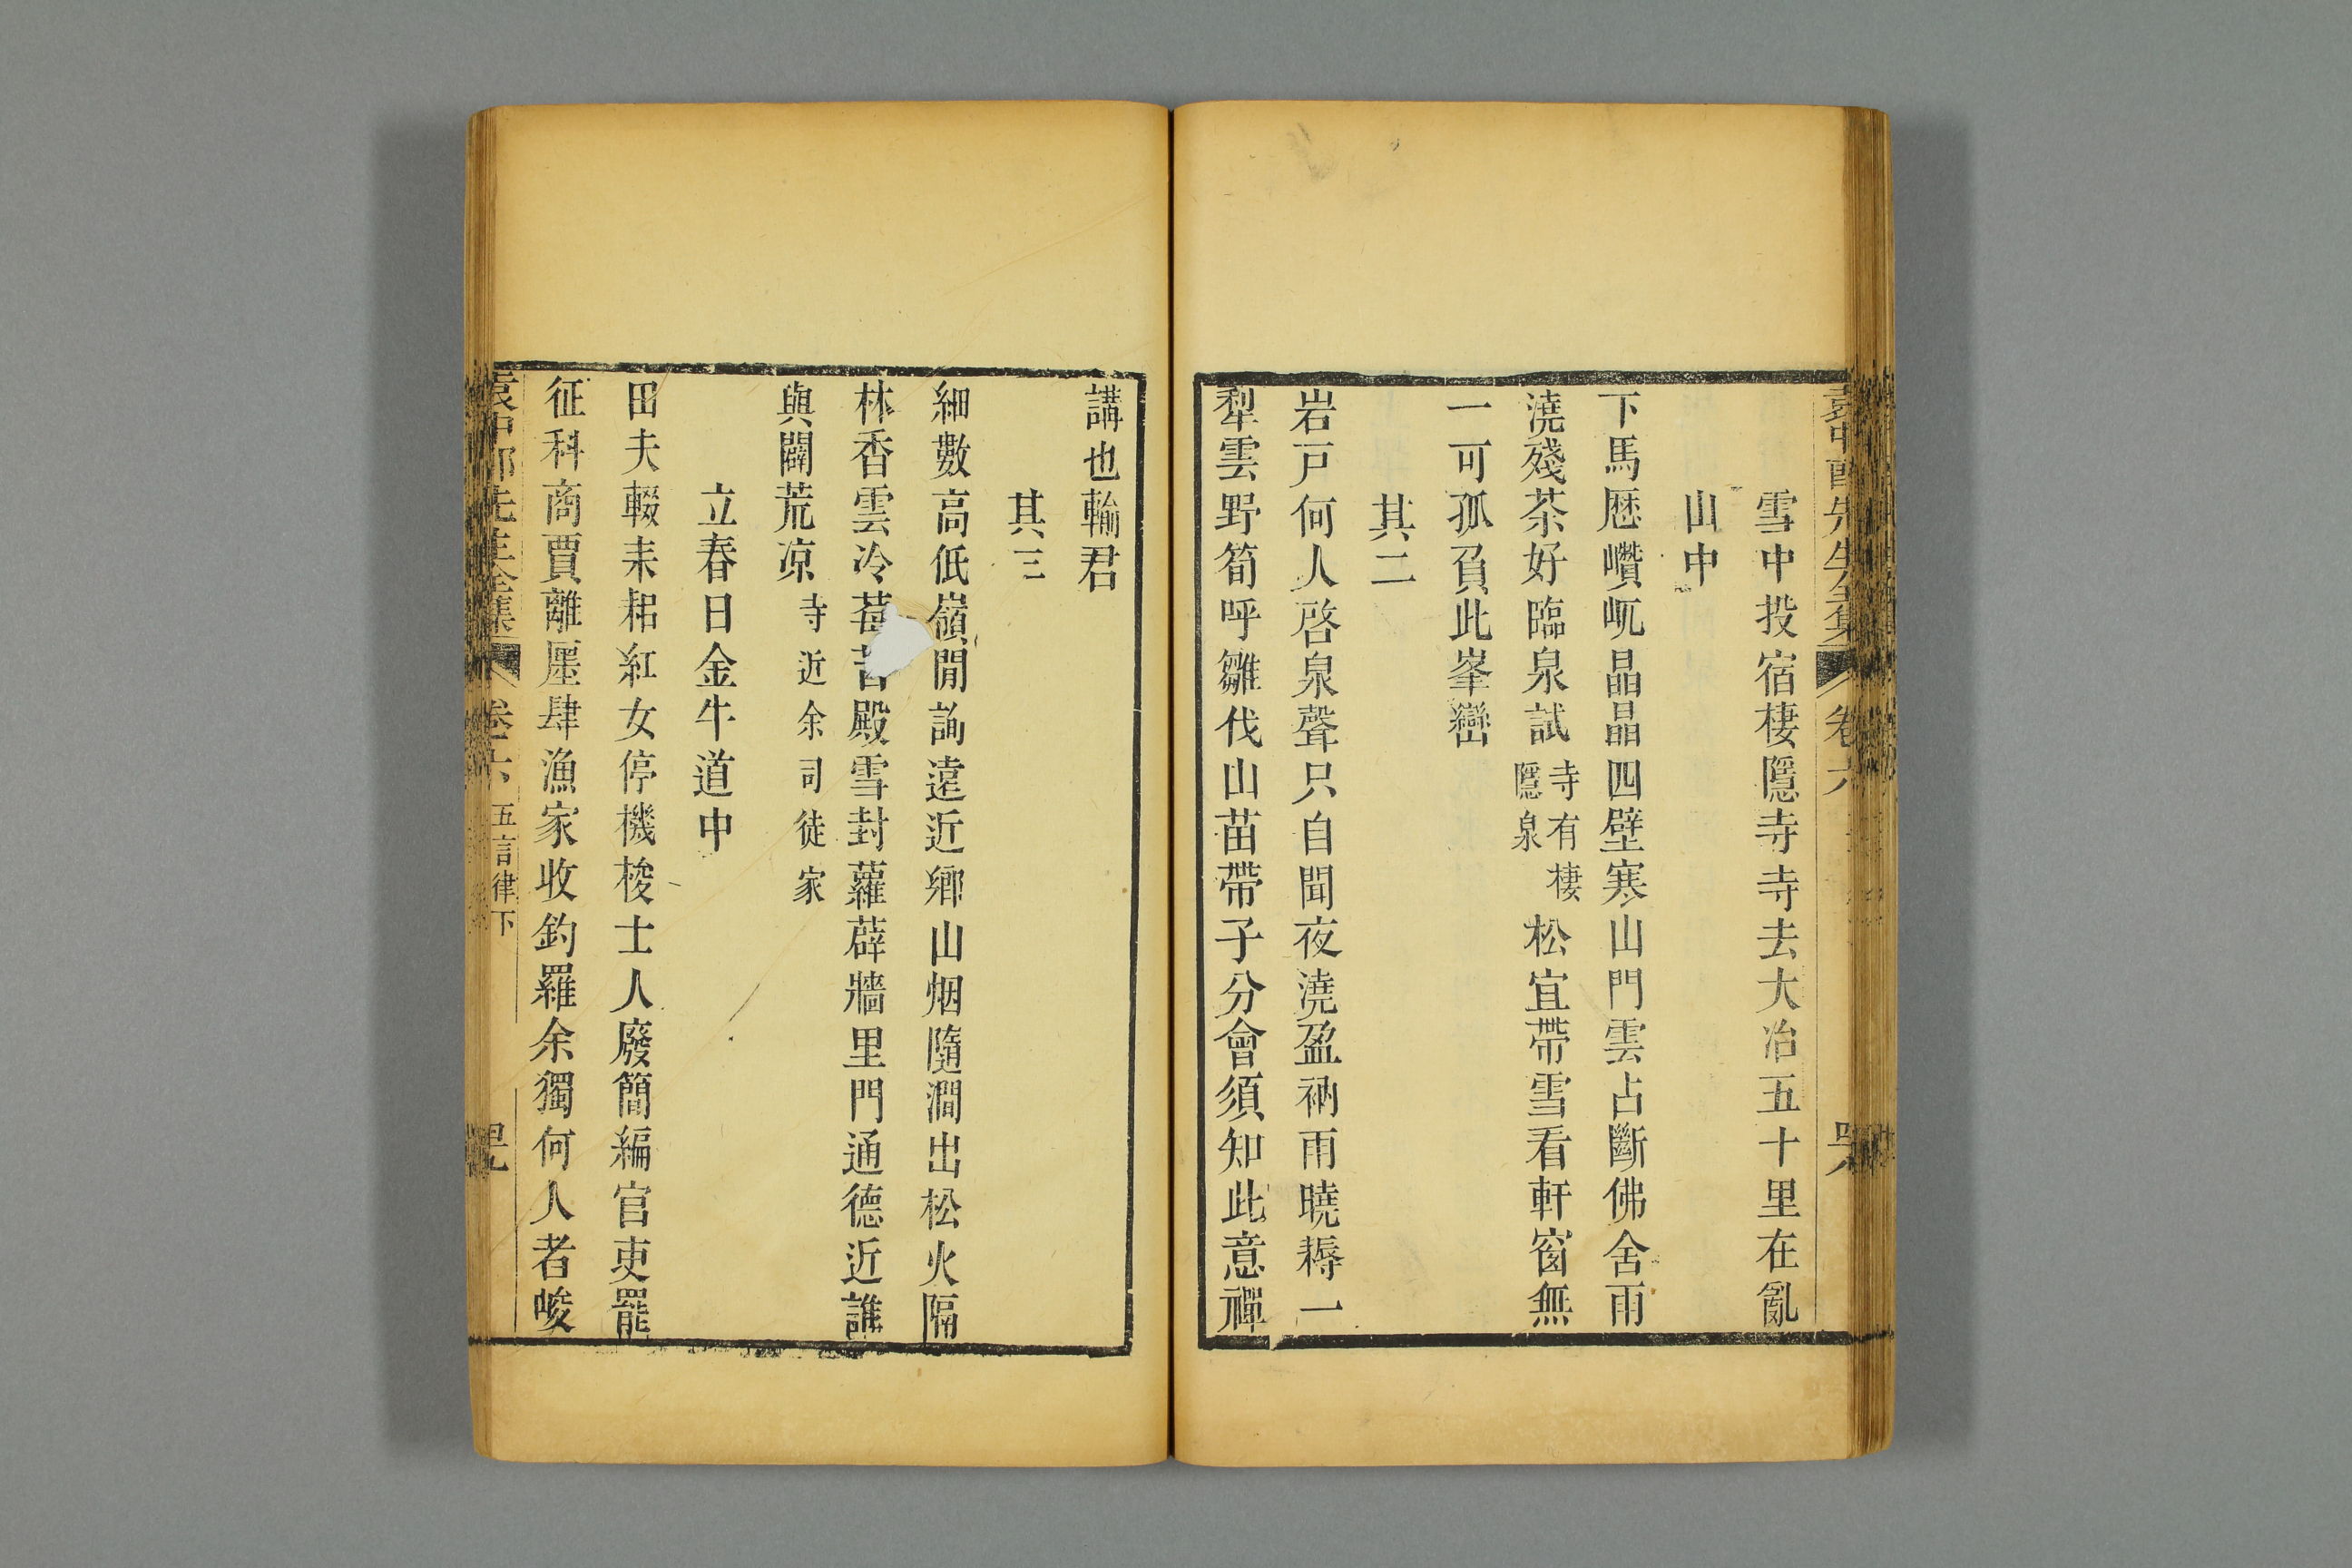 袁中郎先生全集 卷六
雪中投宿棲隱寺寺去大冶五十里在亂
山中
下馬歷巑岏晶晶四壁寒山門雲占斷佛舍雨
澆殘茶好臨泉試寺有棲隱泉松宜帶雪看軒窗無
一可孤負此峯巒
其二
岩戸何人啓泉聲只自聞夜澆盈衲雨曉耨一
犁雲野筍呼雛伐山苗帶子分會須知此意禪
講也輸君
其三
細數高低嶺閒詢遠近鄉山烟隨澗出松火隔
林香雲冷莓苔殿雪封蘿薜牆里門通德近誰
與闢荒凉寺近余司徒家
立春日金牛道中
田夫輟耒耜紅女停機梭士人廢簡編官吏罷
征科商賈離廛肆漁家收釣羅余獨何人者峻
袁中郎先生全集 卷六 五言律下